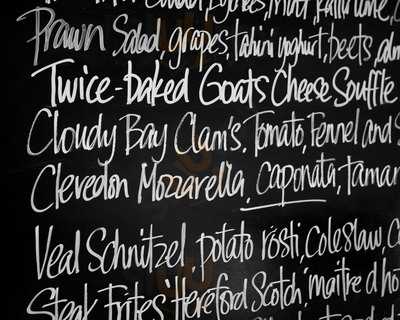 Prawn Salad, grapes, tahini yoghurt, beets,
Twice-baked Goats Cheese Souffle
Cloudy Bay Clam's, Tomato, Fennel and
Clevedon Mozzarella, caponata,
Veal Schnitzel, potato rösti, Coleslaw,
Steak Frites 'Hereford Scotch', maitre d